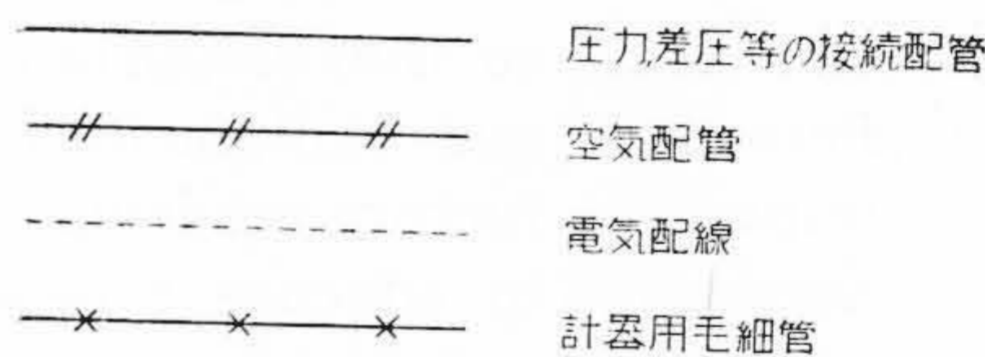 圧力,差圧等の接続配管
空気配管
電気配線
計器用毛細管